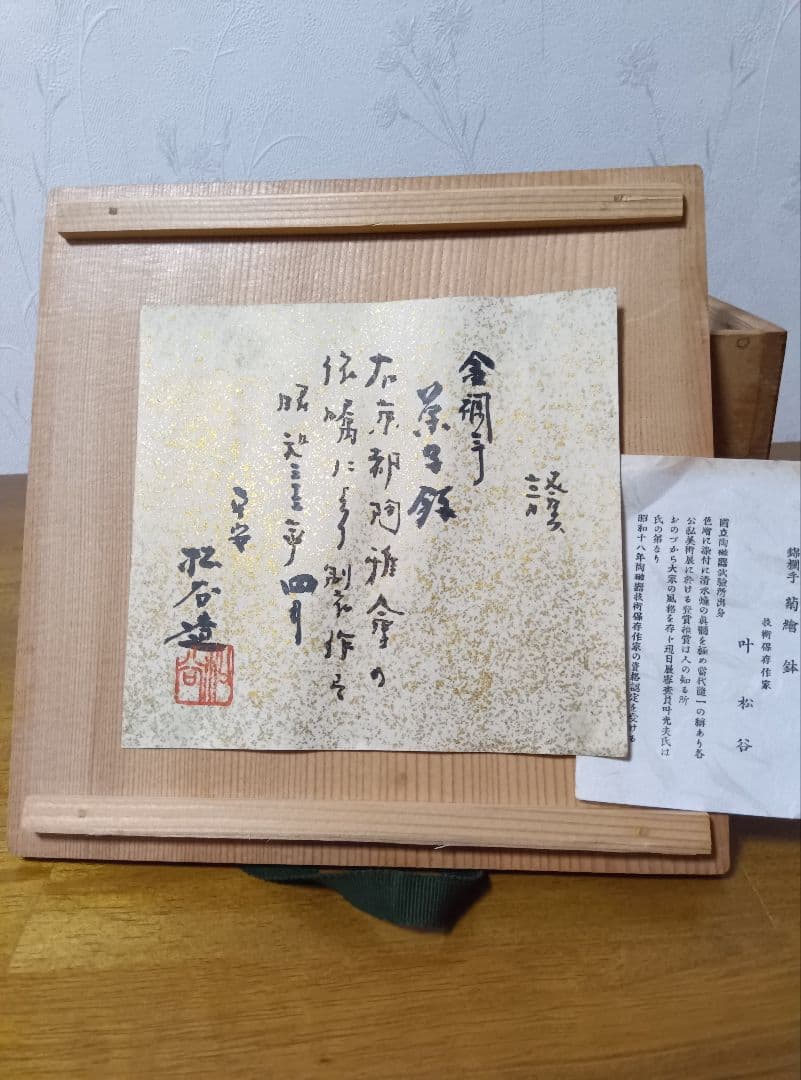 證
金襴手
菓子鉢
右京都陶雅會の
依嘱により制作
昭和
年四月
平安
松谷造
錦襴手 菊繪鉢
技術保存作家
叶 松谷
國立陶磁器試驗所出身
色繪に染付に清水燒の眞髓を極め當代隨一の稱あり各
公私美術展に於ける受賞推賞は人の知る所
おのづから大家の風格を存す現日展審査員叶光夫氏は
氏の弟なり
昭和十八年陶磁器技術保存作家の資格認定を受ける